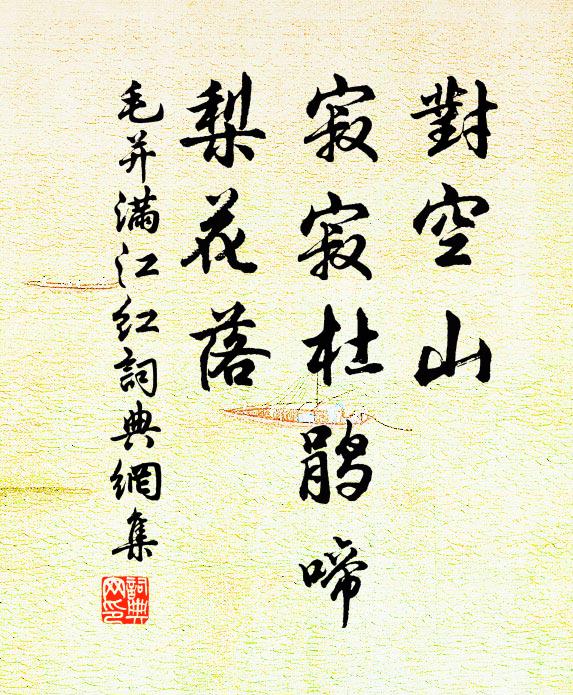 對空山
寂寂杜鵑啼
梨花落
毛并滿江紅詞典網集
詞典网印